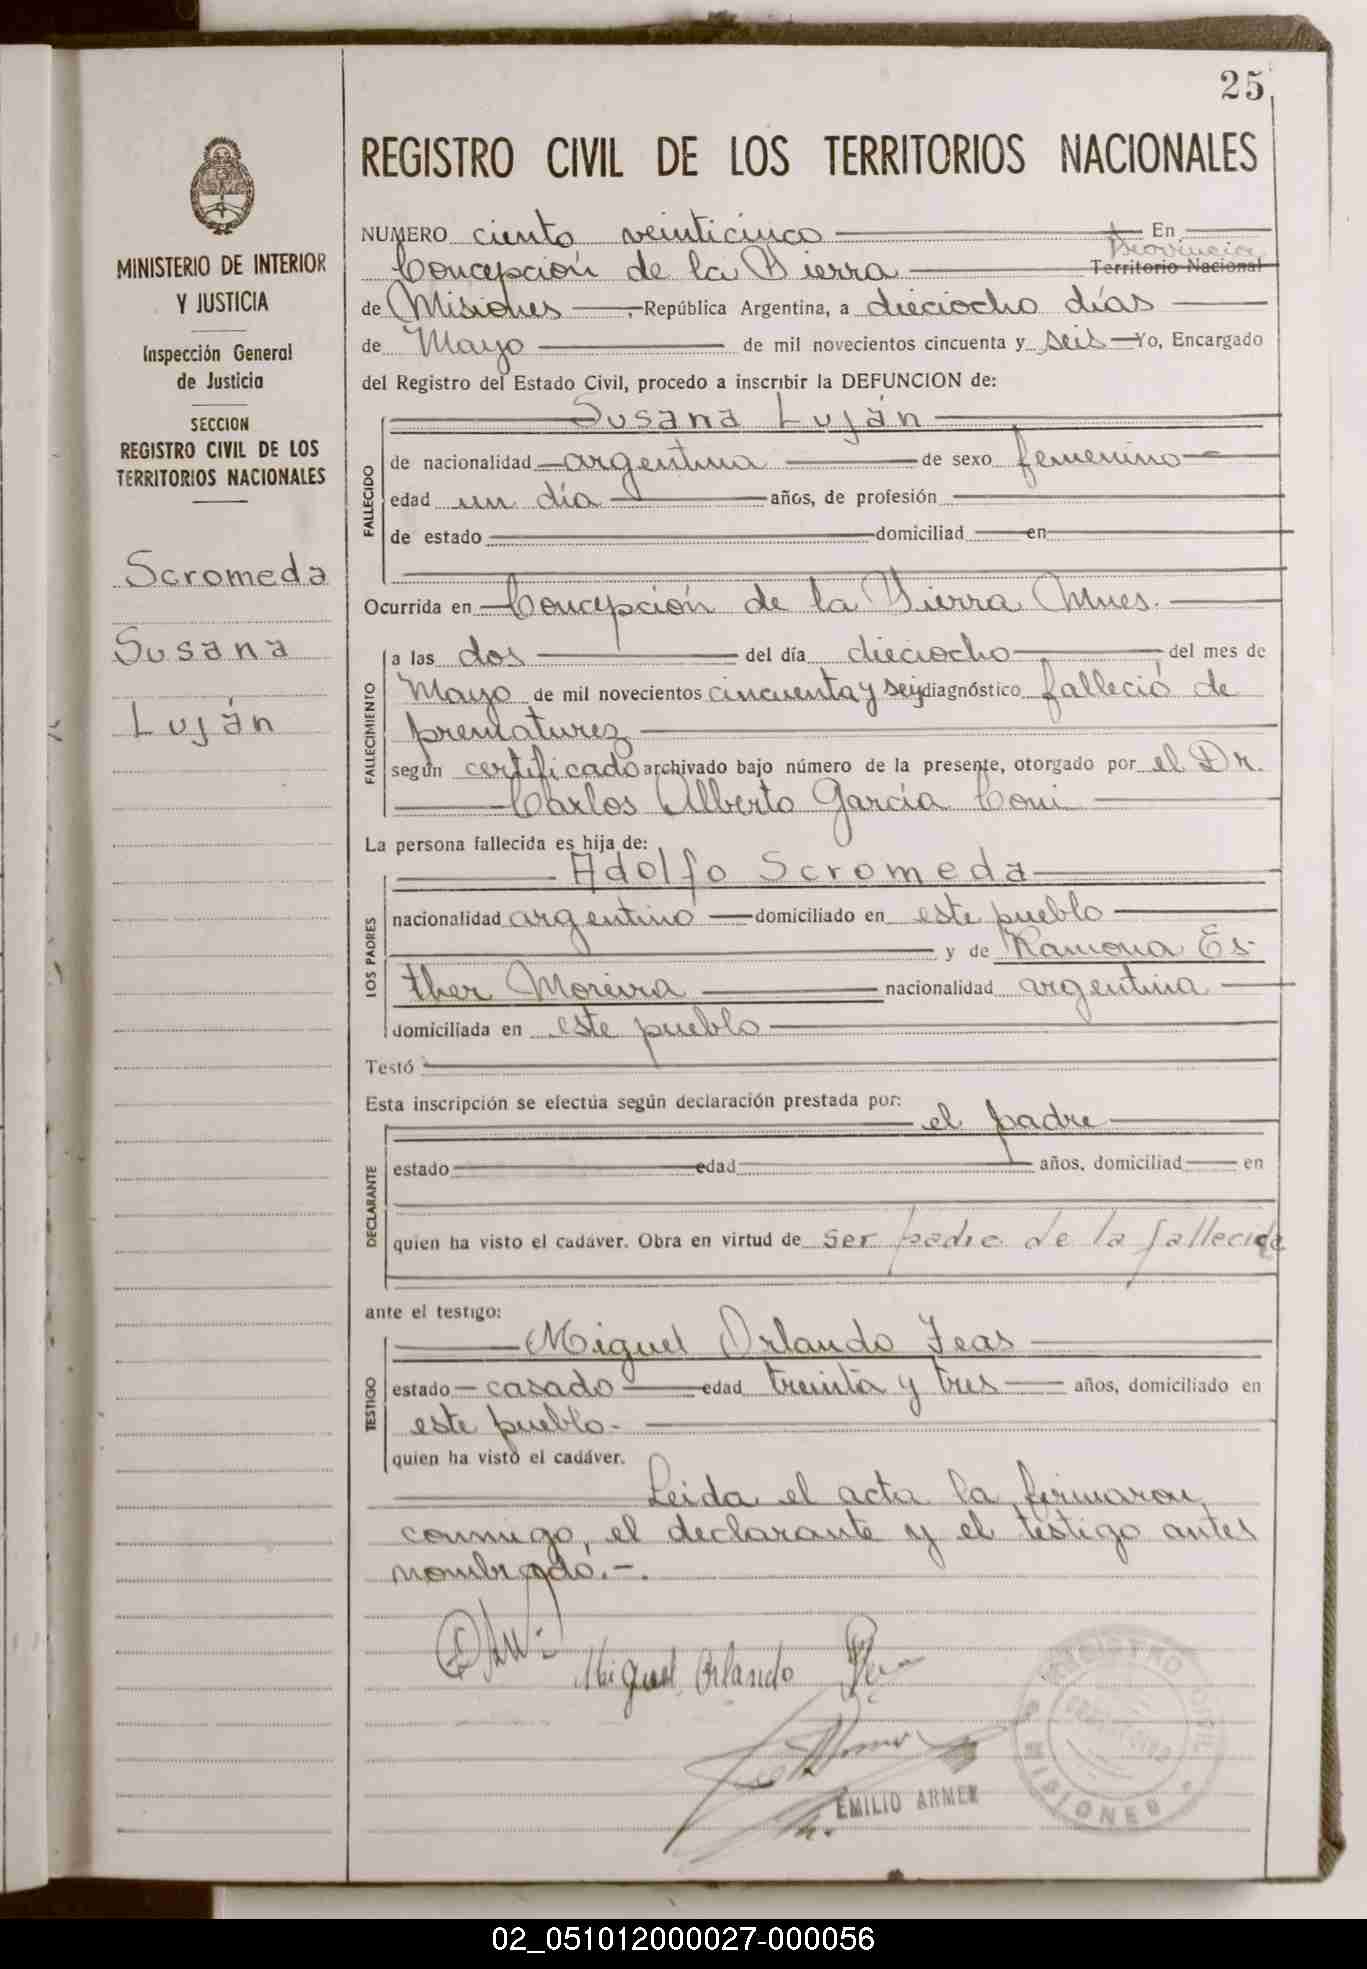 25
MINISTERIO DE INTERIOR
Y JUSTICIA
Inspección General
de Justicia
SECCION
REGISTRO CIVIL DE LOS
TERRITORIOS NACIONALES
Scromeda
Susana
Luján
REGISTRO CIVIL DE LOS TERRITORIOS NACIONALES
NUMERO ciento veinticinco En
Provincia
Concepción de la Sierra Territorio Nacional
de Misiones, República Argentina, a dieciocho días
de Mayo de mil novecientos cincuenta y seis Yo, Encargado
del Registro del Estado Civil, procedo a inscribir la DEFUNCION de:
FALLECIDO
Susana Luján
de nacionalidad argentina de sexo femenino
edad un día años, de profesión
de estado domiciliad en
Ocurrida en Concepción de la Sierra Mnes.
FALLECIMIENTO
a las dos del día dieciocho del mes de
Mayo de mil novecientos cincuenta y seis diagnóstico falleció de
prematurez
según certificado archivado bajo número de la presente, otorgado por el Dr.
Carlos Alberto García Coni
La persona fallecida es hija de:
LOS PADRES
Adolfo Scromeda
nacionalidad argentino domiciliado en este pueblo
y de Ramona Es-
ther Moreira nacionalidad argentina
domiciliada en este pueblo
Testó
Esta inscripción se efectúa según declaración prestada por:
DECLARANTE
el padre
estado edad años, domiciliad en
quien ha visto el cadáver. Obra en virtud de ser padre de la fallecida
ante el testigo:
TESTIGO
Miguel Orlando Feas
estado casado edad treinta y tres años, domiciliado en
este pueblo.-
quien ha visto el cadáver.
Leida el acta la firmaron
conmigo, el declarante y el testigo antes
nombrado.-.
Miguel Orlando
EMILIO ARMER
REGISTRO CIVIL
MISIONES
02_051012000027-000056